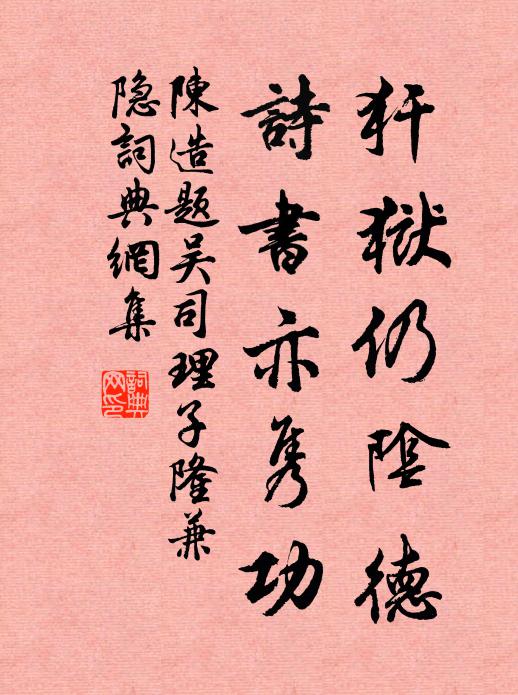 犴獄仍陰德
詩書亦隽功
陳造题吴司理子隆兼
隐詞典網集
詞典
网印